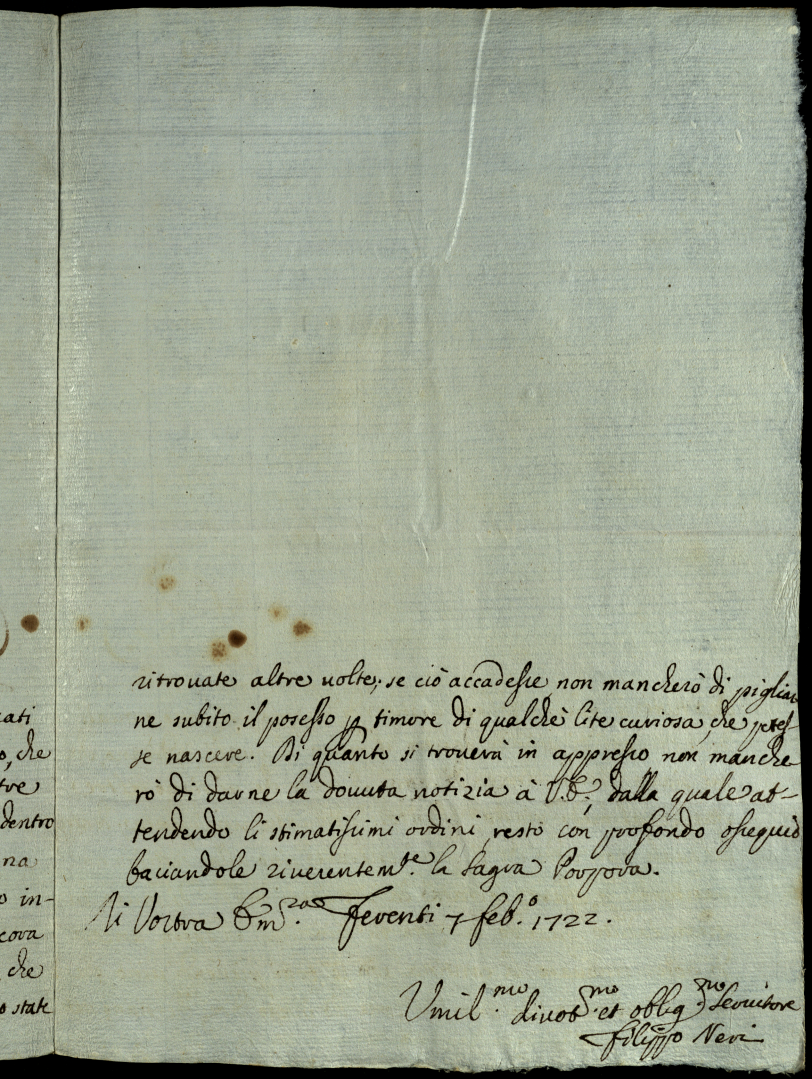 ati
o, che
tre
dentro
na
o in-
cova
che
o state
ritrovate altre volte; se ciò accadesse non mancherò di pigliar
ne subito il posesso p timore di qualche lite curiosa, che potes
se nascere. Di quanto si troverà in appresso non manche
rò di darne la dovuta notizia à V.E., dalla quale at-
tendendo li stimatissimi ordini resto con profondo ossequio
baciandole riverentem.te la Sagra Porpora.
Di Vostra Em.za Ferenti 7 feb.o 1722.
Umil.mo divot.mo et oblig.mo Servitore
Filippo Neri